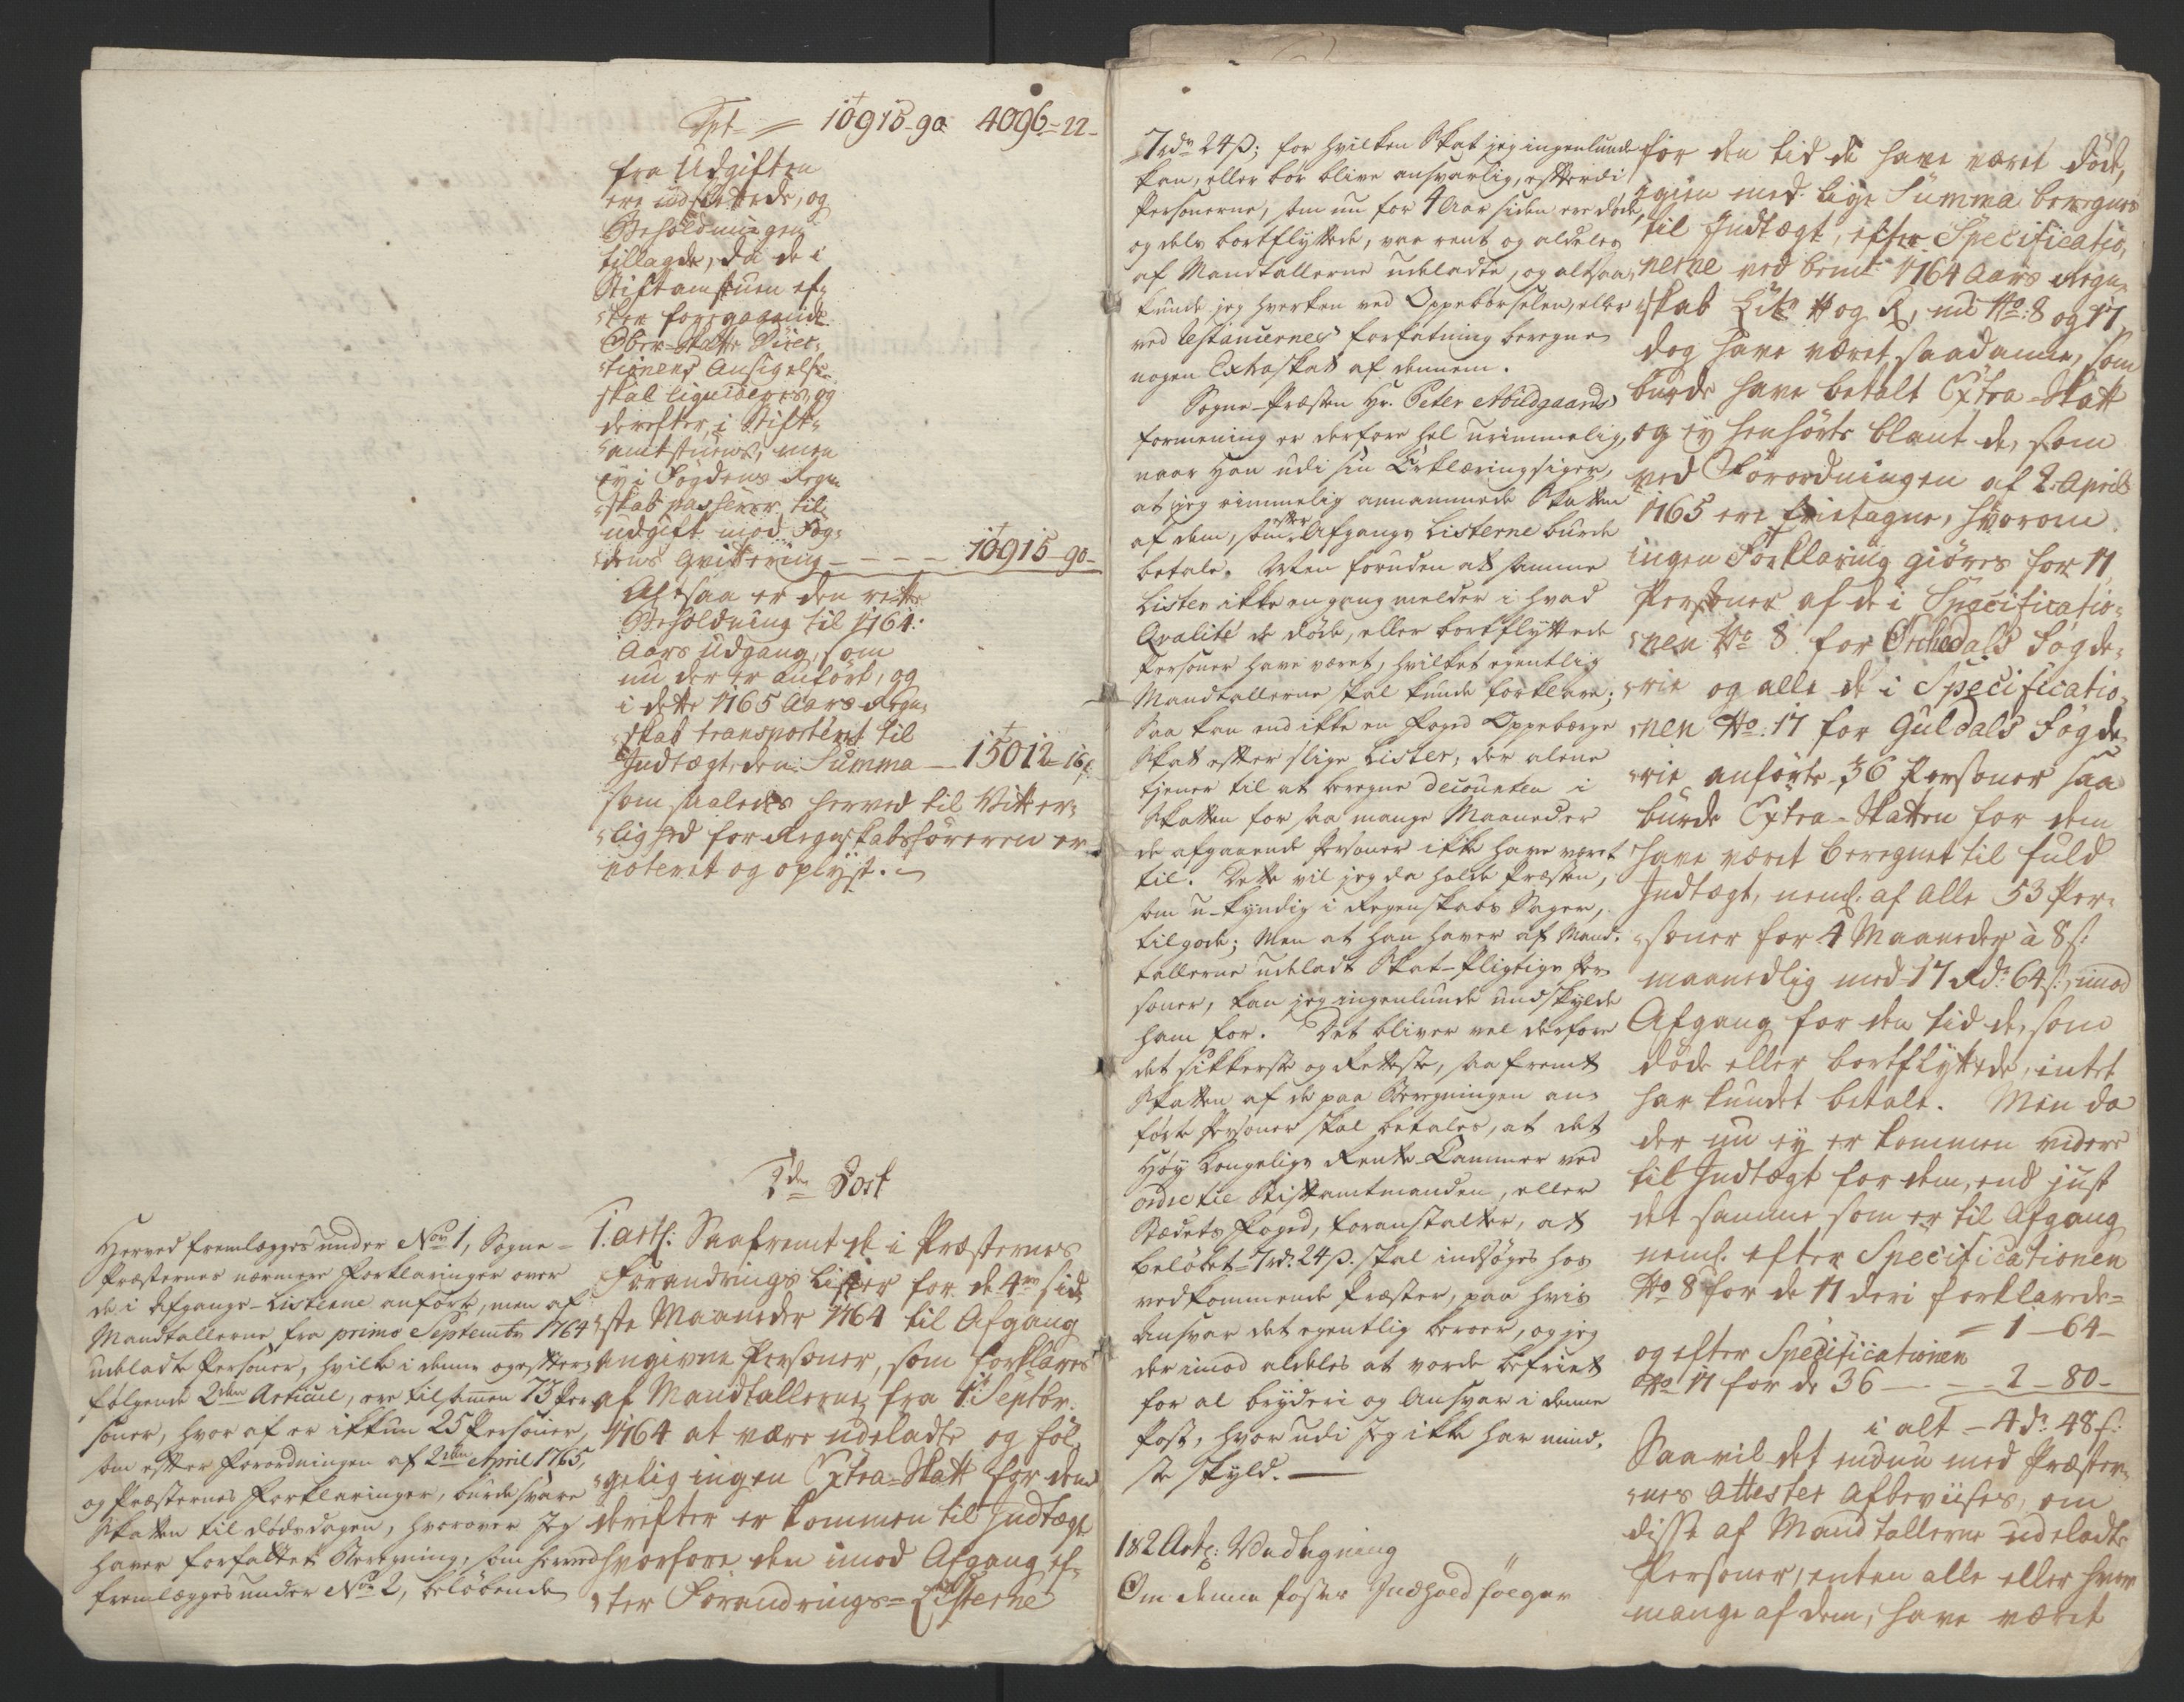 Spt = 10915-90 4096-22-
fra Udgiften
ere udslettede, og
Beholdningen
tillagde, da de i
Stiftamstuen ef-
ter foregaaende
Ober-Skatte Direc-
tionens Ansigelse
skal liquideres, og
derefter i Stift-
amtstuens, men
ey i Fogdens Regn-
skab passerer til
udgift mod Fog-
dens Qvittering - - - - 10915-90-
Altsaa er den rette
Beholdning til 1764:
Aars Udgang, som
nu der er anført, og
i dette 1765 Aars Regn-
skab transporteret til
Indtægt, den Summa - 15012-16s
som saaledes herved til Vitter-
lighed for Regnskabsføreren er
noteret og oplyst.
1den Post
Herved fremlægges under No 1, Sogne-
Præsternes nærmere Forklaringer over
de i Afgangs-Listerne anførte, men af
Mandtallerne fra primo Septembr 1764
udeladte Personer, hvilke i denne og efter-
følgende 2den Articul, ere tilsammen 73 Per-
soner, hvor af er ikkun 25 Personer,
som efter Forordningen af 2den April 1765,
og Præsternes Forklaringer, burde svare
Skatten til dødsdagen, hvorover jeg
haver forfattet Beregning, som herved
fremlægges under No 2, beløbende
1. artl: Saafremt de i Præsternes
Forandrings Lister for de 4re sid-
ste Maaneder 1764 til Afgang
angivne Personer, som forklares
af Mandtallerne fra 1: Septbr.
1764 at være udeladte og føl-
gelig ingen Extra-Skatt for dem
derefter er kommen til Indtægt
hvorfore den imod Afgang ef-
ter Forandrings-Listerne
7 rdr 24 β; for hvilken Skat jeg ingenlunde
kan, eller bør blive ansvarlig, efterdi
Personerne, som nu for 4 Aar siden ere døde,
og dels bortflyttede, var rent og aldeles
af Mandtallerne udeladte, og altsaa
kunde jeg hverken ved Oppebørselen, eller
ved Restancernes Forfatning beregne
nogen Extraskat af dennem.
Sogne-Præsten Hr. Peter Abildgaards
formening er derfore hel urimmelig,
naar Han udi sin Erklæring siger,
at jeg rimmelig annammede Skatten
af dem, som efter Afgangs Listerne burde
betale. Men foruden at samme
Lister ikke engang melder i hvad
Qvalité de døde, eller bortflyttede
Personer have været, hvilket egentlig
Mandtallerne skal kunde forklare;
Saa kan end ikke en Foged Oppebørge
Skat efter slige Lister, der alene
tjener til at beregne decourten i
Skatten for saa mange Maaneder
de afgaaende Personer ikke have været
til. Dette vil jeg da holde Præsten,
som u-kyndig i Regenskabs Sager,
tilgode; Men at han haver af Mand-
tallerne udeladt Skat-Pligtige Per-
soner, kan jeg ingenlunde undskylde
ham for. Det bliver vel derfore
det sikkerste og Retteste, saa fremt
Skatten af de paa Beregningen an-
førte Personer skal betales, at det
Høy Kongelige Rente-Cammer ved
ordre til Stiftamtmanden, eller
Stædets Foged, foranstalter, at
beløbet 7 rd. 24 β. skal indsøges hos
vedkommende Præster, paa hvis
Ansvar det egentlig beroer, og jeg
der imod aldeles at vorde befriet
for al bryderi og Ansvar i denne
Post, hvor udi jeg ikke har mind-
ste skyld. —
1&2 Artl: Undtagning
Om denne Postes Indhold følger
for den tid de have været døde,
igien med lige Summa beregnes
til Indtægt, efter Specificatio-
nerne ved bemte 1764 Aars Regn-
skab Litr: H og R, sub No: 8 og 17
dog have været saadanne, som
burde have betalt Extra-Skatt
og ey henhørte blant de, som
ved Forordningen af 2. April
1765 ere fritagne, hvorom
ingen Forklaring giøres for 17
Personer af de i Specificatio-
nen No 8 for Orchedals Fogde-
rie og alle de i Specificatio-
nen No: 17 for Guldals Fogde-
rie anførte 36 Personer saa
burde Extra-Skatten for dem
have været beregnet til fuld
Indtægt, neml. af alle 53 Per-
soner for 4 Maaneder à 8 s:
maanedlig med 17 Rdr 64 s:, imod
Afgang for den tid de, som
døde eller bortflyttede, intet
har kundet betale. Men da
der nu ey er kommen videre
til Indtægt for dem, end just
det samme som er til Afgang
neml. efter Specificationen
No 8 for de 17 deri forklarede-
= 1 - 64-
og efter Specificationen
No 17 for de 36 - - - 2 - 80-
i alt - 4 dr 48 s:
Saa vil det endnu med Præster-
nes Attester Afbeviises, om
disse af Mandtallerne udeladte
Personer, enten alle eller hvor
mange af dem, have været